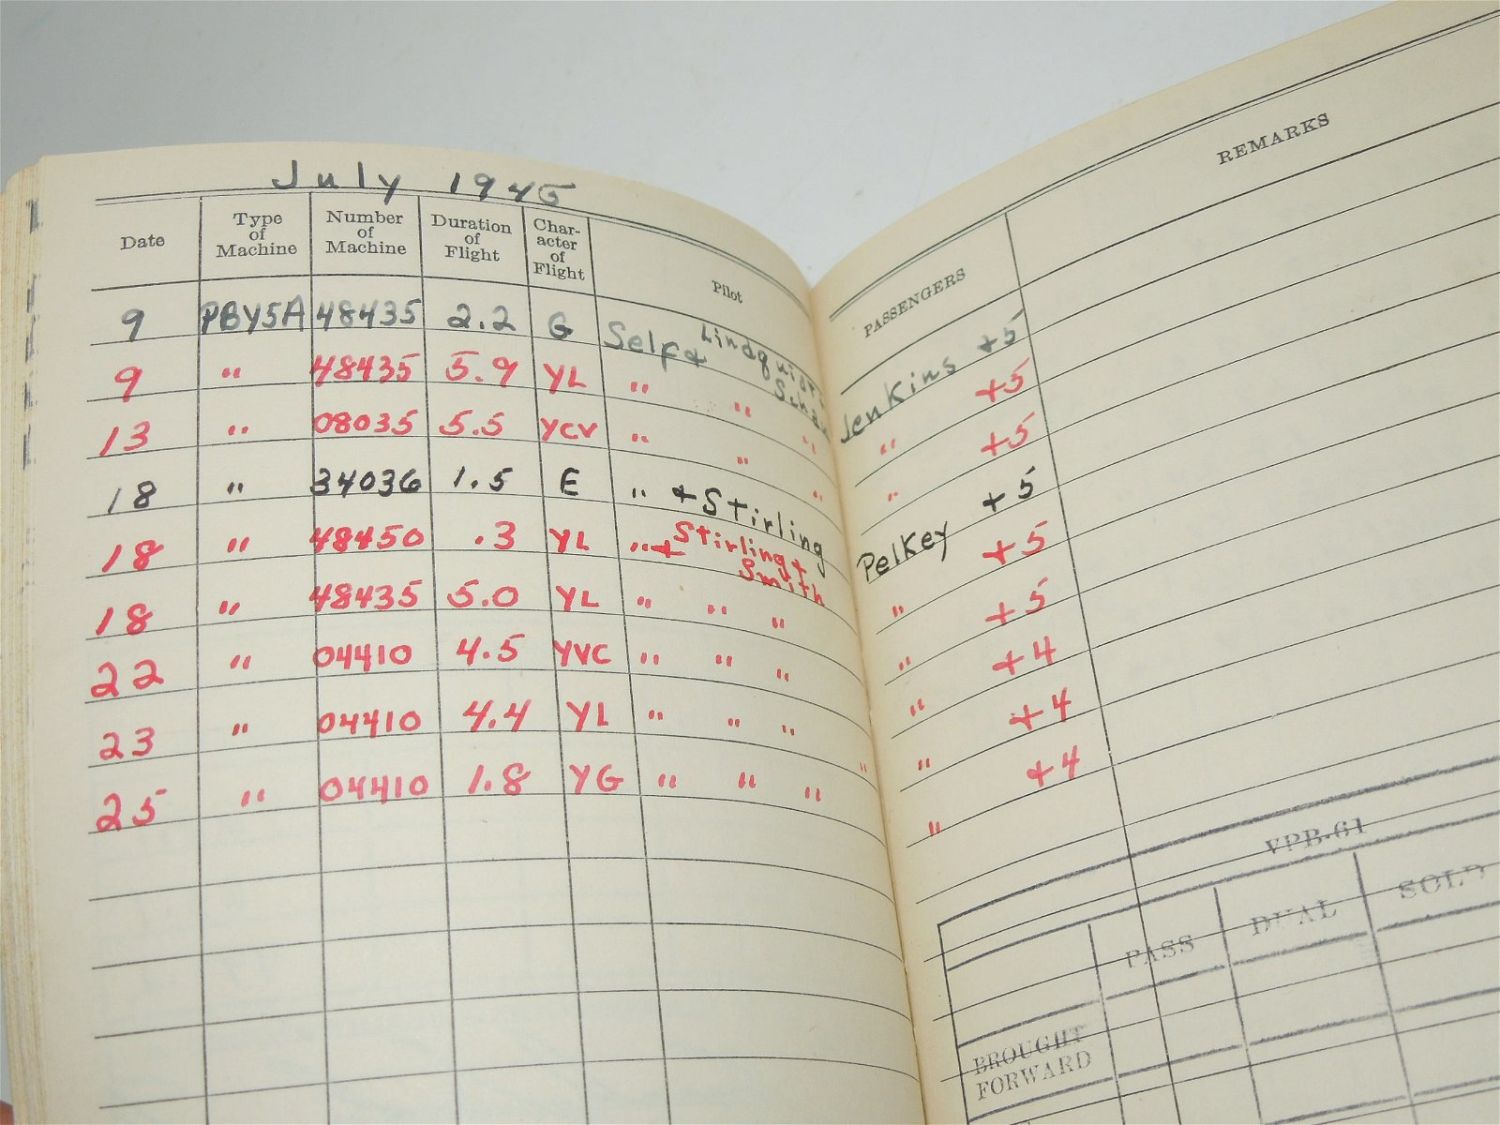 July 1945
Date Type of Machine Number of Machine Duration of Flight Character of Flight Pilot PASSENGERS REMARKS
9 PBY5A 48435 2.2 G Self & Lindquist Jenkins +5
9 " 48435 5.9 YL " " " " +5
13 " 08035 5.5 YCV " " " " +5
18 " 34036 1.5 E " + Stirling Pelkey +5
18 " 48450 .3 YL " + Stirling + Smith " +5
18 " 48435 5.0 YL " " " " +5
22 " 04410 4.5 YVC " " " " +4
23 " 04410 4.4 YL " " " " +4
25 " 04410 1.8 YG " " " " +4
VPB-61
PASS DUAL SOLO
BROUGHT FORWARD